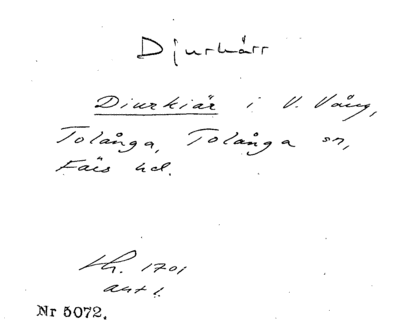 Djurkärr
Diurkiär i V. Vång,
Tolånga, Tolånga sn,
Färs hd.
Lh. 1701
avt 1.
Nr 5072.